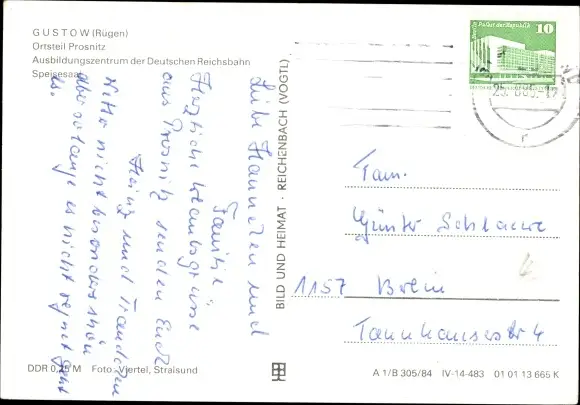 GUSTOW (Rügen)
Ortsteil Prosnitz
Ausbildungszentrum der Deutschen Reichsbahn
Speisesaal
Liebe Hannelen und
Familie,
Herzliche Urlaubsgrüsse
aus Prosnitz senden Euch
Heinz und Traudchen
Wetter nicht besonders schön
aber solange es nicht regnet geht
es.
DDR 0,25 M Foto: Viertel, Stralsund
BILD UND HEIMAT · REICHENBACH (VOGTL)
Berlin, Palast der Republik
10
Fam.
Günter
1157 Berlin
Tannhäuserstr 4
A 1/B 305/84 IV-14-483 01 01 13 665 K